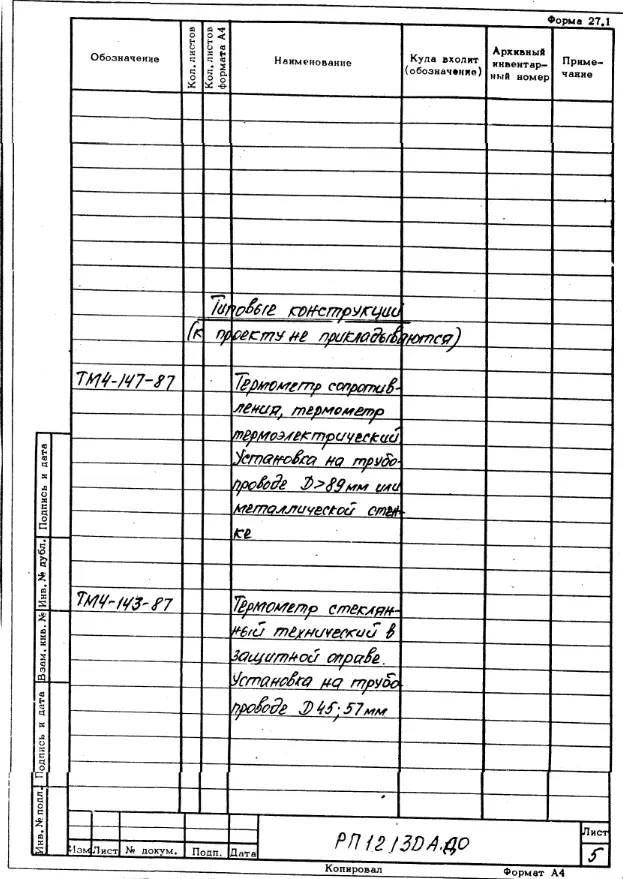 Форма 27.1
Обозначение
Кол. листов
Кол. листов формата А4
Наименование
Куда входит (обозначение)
Архивный инвентар-ный номер
Приме-чание
Типовые конструкции
(к проекту не прикладываются)
ТМ4-147-87
Термометр сопротив-
ления, термометр
термоэлектрический
Установка на трубо-
проводе D>89мм или
металлической стен-
ке
ТМ4-143-87
Термометр стеклян-
ный технический в
защитной оправе.
Установка на трубо
проводе D 45; 57мм
Инв. № подл.
Подпись и дата
Взам. инв. №
Инв. № дубл.
Подпись и дата
Изм
Лист
№ докум.
Подп.
Дата
РП1213DА.ДО
Лист
5
Копировал
Формат А4